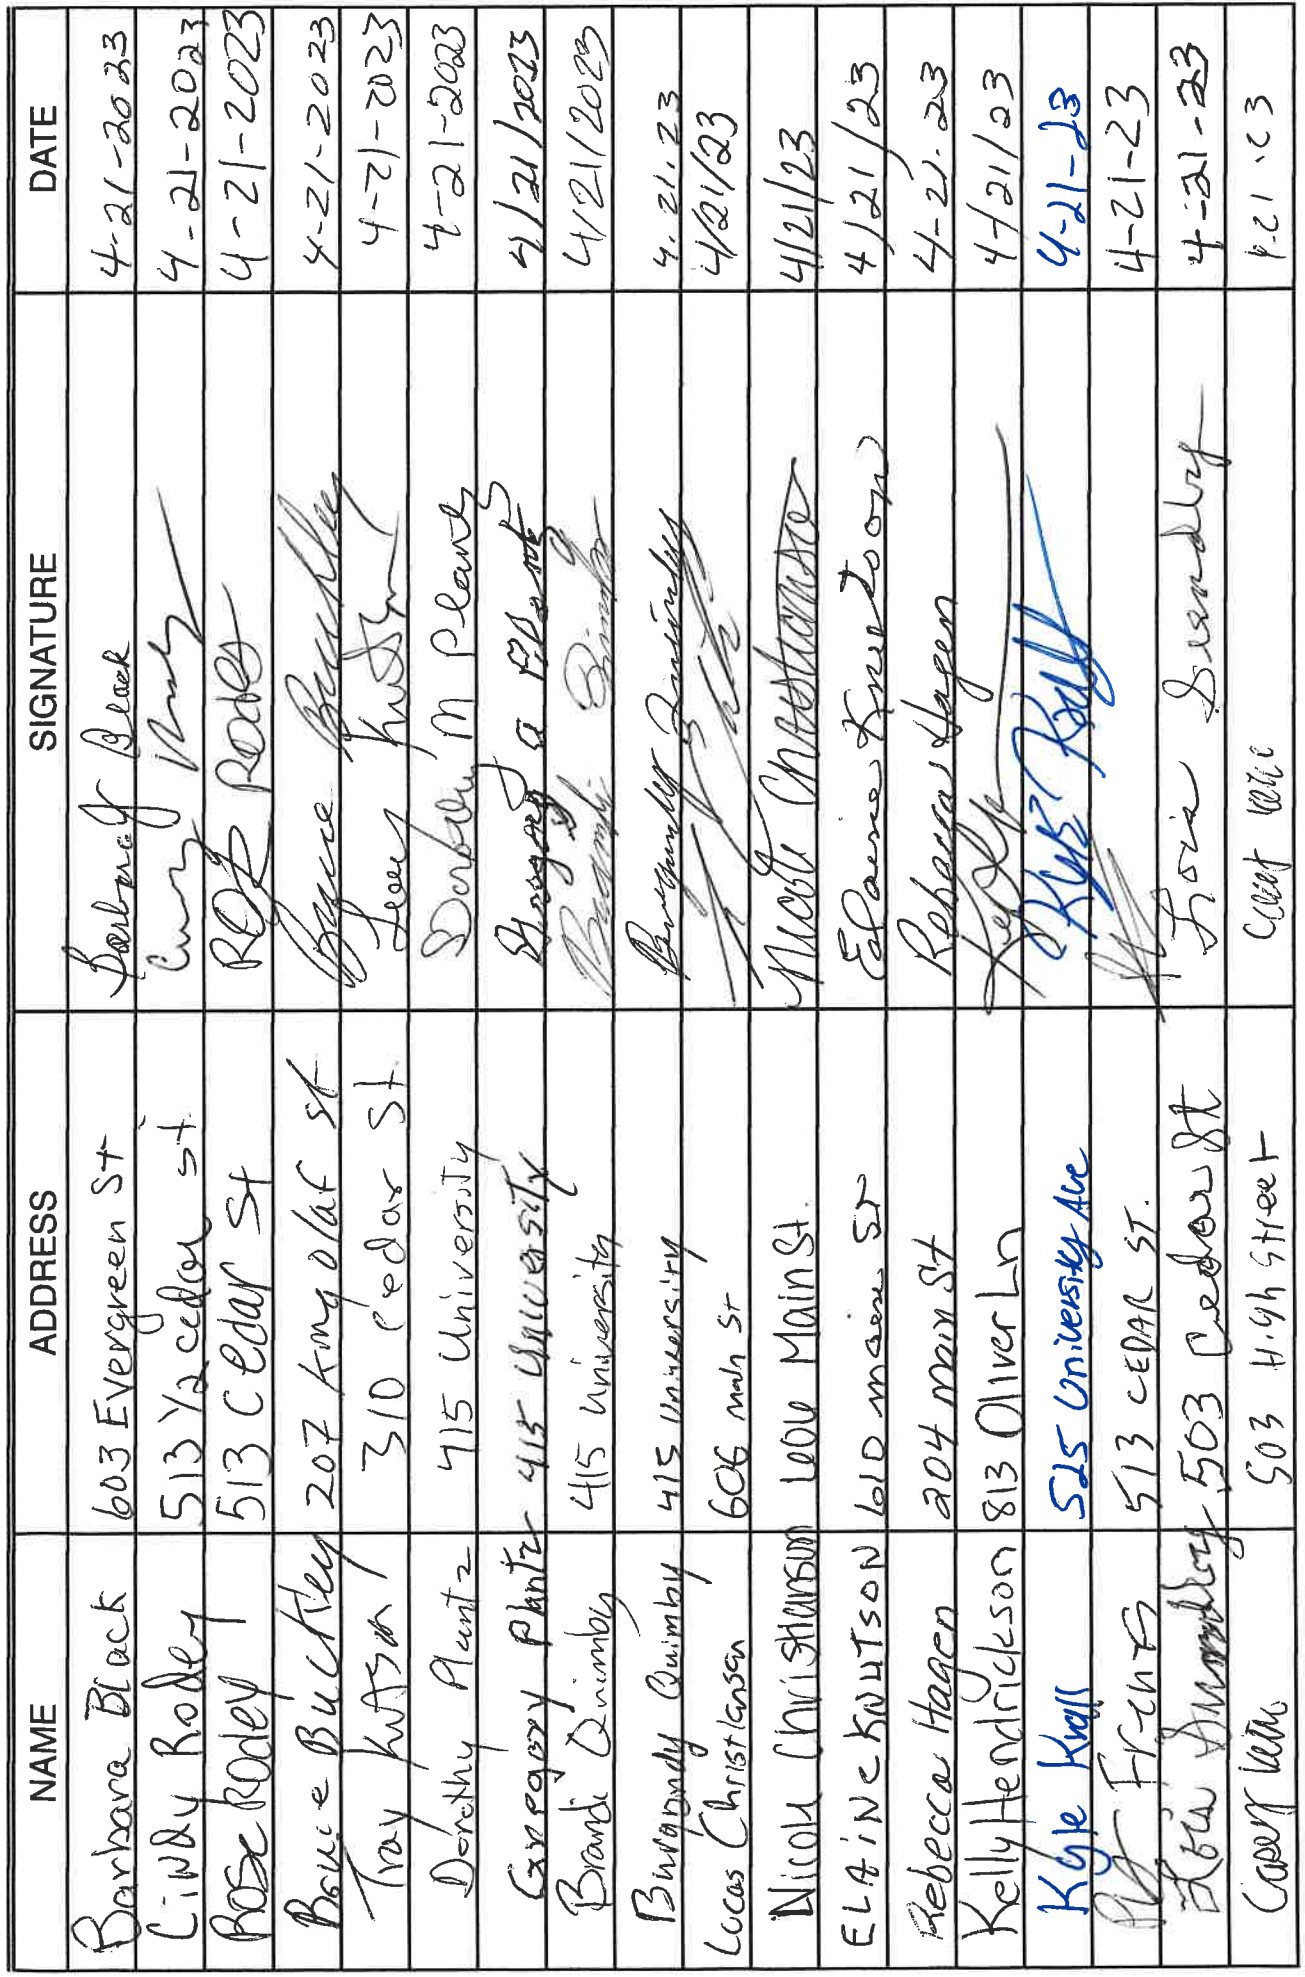 NAME ADDRESS SIGNATURE DATE
Barbara Black 603 Evergreen St Barbara J Black 4-21-2023
Cindy Rodey 513 1/2 cedar st 4-21-2023
Rose Rodey 513 Cedar St 4-21-2023
Bruce Buckley 207 King olaf st Bruce Buckley 4-21-2023
Troy Knutson 310 Cedar St. 4-21-2023
Dorothy Plantz 415 University Dorothy M Plantz 4-21-2023
Gregory Plantz 415 University Gregory a Plantz 4/21/2023
Brandi Quimby 415 University Brandi Quimby 4/21/2023
Burgandy Quimby 415 University Burgandy Quimby 4.21.23
Lucas Christiansen 606 main St 4/21/23
Nicole Christianson 606 Main St. Nicole Christianson 4/21/23
ELAiNe KNUTSON 610 main St Elaine Knutson 4/21/23
Rebecca Hagen 204 main St Rebecca Hagen 4-21-23
Kelly Hendrickson 813 Oliver Ln 4/21/23
Kyle Krall 525 University Ave Kyle Krall 4-21-23
513 CEDAR ST. 4-21-23
503 Cedar St 4-21-23
503 High Street